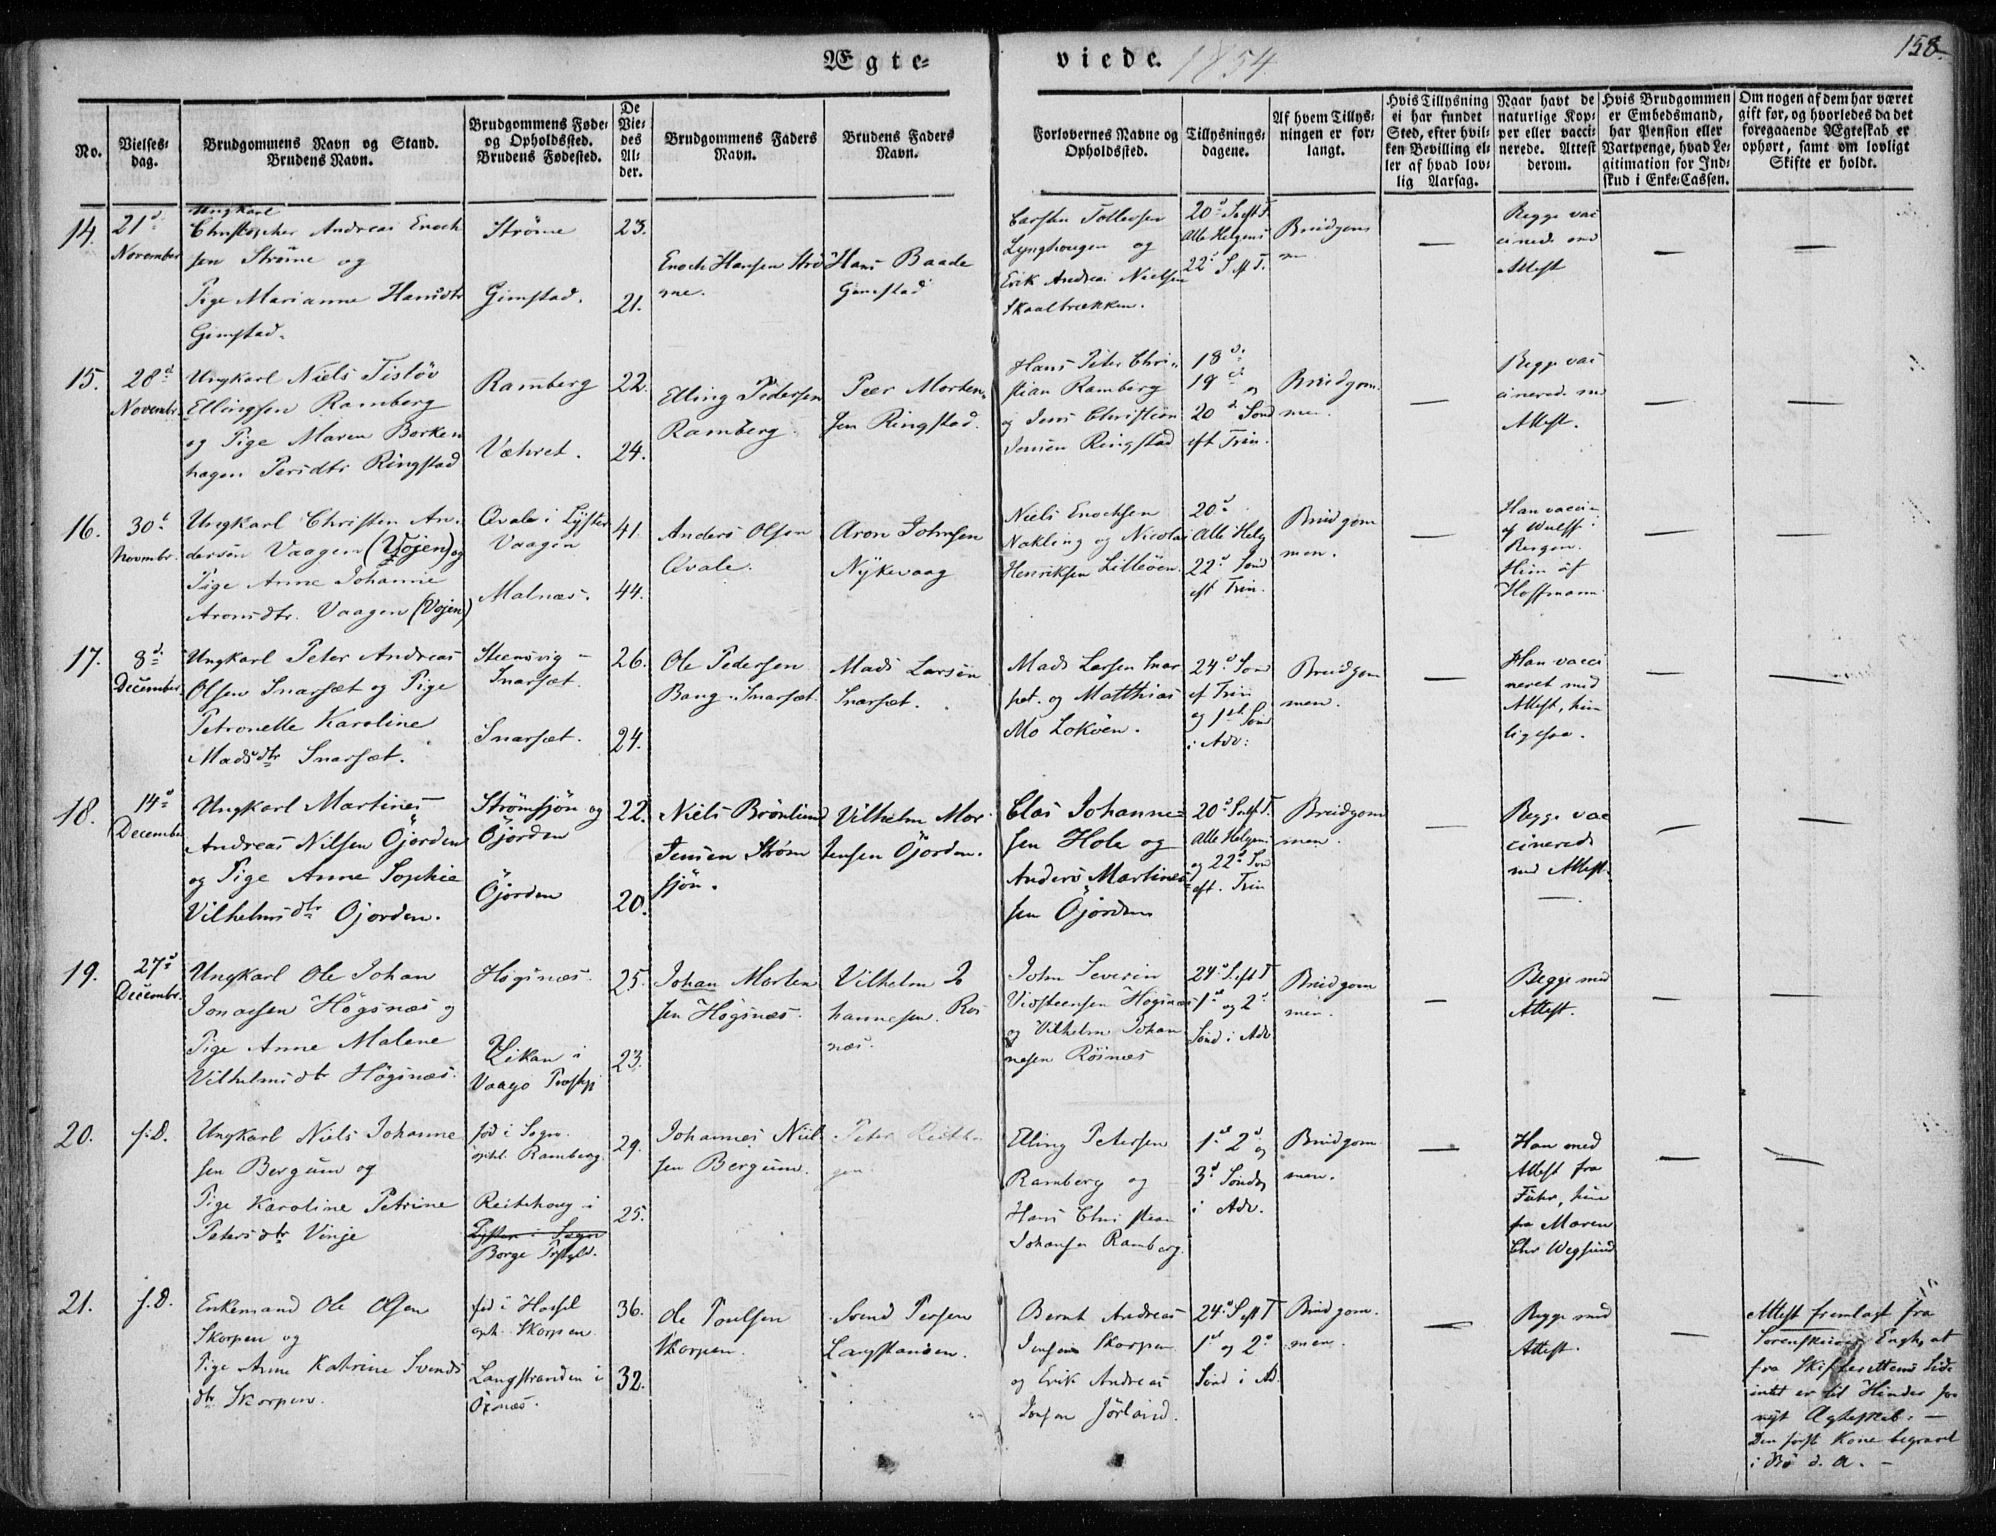 Ægte-
viede. 1854
158
No.
Vielses-
dag.
Brudgommens Navn og Stand.
Brudens Navn.
Brudgommens Føde-
og Opholdssted.
Brudens Fødested.
De
Vie-
des
Al-
der.
Brudgommens Faders
Navn.
Brudens Faders
Navn.
Forlovernes Navne og
Opholdssted.
Tillysnings-
dagene.
Af hvem Tillys-
ningen er for-
langt.
Hvis Tillysning
ei har fundet
Sted, efter hvil-
ken Bevilling el-
ler af hvad lov-
lig Aarsag.
Naar havt de
naturlige Kop-
per eller vacci-
nerede. Attest
derom.
Hvis Brudgommen
er Embedsmand,
har Pension eller
Vartpenge, hvad Le-
gitimation for Ind-
skud i Enke-Cassen.
Om nogen af dem har været
gift før, og hvorledes da det
foregaaende Ægteskab er
ophørt, samt om lovligt
Skifte er holdt.
14.
21d
November
Ungkarl
Christopher Andreas Enoch
sen Strøme og
Pige Marianne Hansdtr
Gimstad.
Strøme
Gimstad.
23.
21.
Enoch Hansen Strø
me.
Hans Baade
Gimstad
Carsten Tollevsen
Lynghougen og
Erik Andreas Nielsen
Skaalbrækken.
20d S. eft T.
Alle Helgens
22d S. eft T.
Brudgom
m
—
Begge vac
cinede md
Attest
—
—
15.
28d
Novembr.
Ungkarl Niels Tisløv
Ellingsen Ramberg
og Pige Maren Borken
hagen Persdtr Ringstad
Ramberg
Væhret.
22.
24.
Elling Pedersen
Ramberg.
Peer Morten-
sen Ringstad.
Hans Peter Chri-
stian Ramberg
og Jens Christian
Jensen Ringstad
18d
19d og
20d Sønd
eft Trin.
Brudgom
men.
—
Begge vac
cinerede m
Attest.
—
—
16.
30t
Novmbr.
Ungkarl Christen An-
dersen Vaagen (Vojen) og
Pige Anne Johanne
Aronsdtr. Vaagen (Vojen)
Qvale i Lyster
Vaagen
Malnæs.
41.
44.
Anders Olsen
Qvale.
Aron Johnsen
Nykevaag
Niels Enochsen
Nakling og Nicolai
Henriksen Lilleöen.
20d
Alle Helg
22d Sønd
eft Trin.
Brudgom
men.
—
Han vacci-
af Wulff
Bergen.
Hun af
Hoffmann
—
—
17.
8d
December
Ungkarl Peter Andreas
Olsen Snarsæt og Pige
Petronelle Karoline
Madsdtr Snarsæt.
Steensvig –
Snarsæt.
Snarsæt.
26.
24.
Ole Pedersen
Bang Snarsæt.
Mads Larsen
Snarsæt.
Mads Larsen Snar
sæt. og Matthias
Mo Lokøen.
24d Sønd
ef Trin
og 1st Sønd
i Adv:
Brudgom
men.
—
Han vacci
neret med
Attest, hun
ligesaa.
—
—
18.
14d
December
Ungkarl Martines
Andreas Nilsen Öjorden
og Pige Anne Sophie
Vilhelmsdtr Öjorden.
Strømsjøn og
Öjorden
Öjorden
22.
20.
Niels Brönlund
Jensen Strøm
sjøn.
Vilhelm Mor-
tensen Öjorden.
Clas Johanne-
sen Hola og
Anders Martines-
sen Öjorden
20d S. eft T.
Alle Helgens
og 22d Sønd
eft. Trin
Brudgom
men.
—
Begge vac
cinerede
med Attest.
—
—
—
19.
27d
Decembr.
Ungkarl Ole Johan
Jonassen Högsnæs og
Pige Anne Malene
Vilhelmsdtr Högsnæs.
Högsnæs.
Uikan i
Vaagø Præstgj
25.
23.
Johan Morten
sen Högsnæs.
Vilhelm Jo
hannesen Rös
næs.
John Severin
Vidsteensen Högsnæs
og Vilhelm Johan
nesen Rösnæs
24d S. eft T
1st og 2d
Sønd i Adv
Brudgom
men.
—
Begge med
Attest.
—
—
20.
s.D.
Ungkarl Niels Johanne
sen Bergum og
Pige Karoline Petrine
Petersdtr Vinje
fød i Sogn
oph. Ramberg.
Reitehoug i
Lyster i Sogn
Borge Prstgld.
29.
25.
Johannes Niel
sen Bergum.
Peter
Elling Petersen
Ramberg og
Hans Christian
Johansen Ramberg.
1st 2d og
3d Søndg
i Adv.
Brudgom
men.
—
Han med
Attest fra
Führ, hun
fra Maren
Chr Wegsund
—
—
21.
s.D.
Enkemand Ole Olsen
Skorpen og
Pige Anne Katrine Svends
dtr Skorpen.
fød i Hassel
oph. Skorpen
Langstranden i
Öxnæs.
36.
32.
Ole Poulsen
Skorpen.
Svend Persen
Langstranden.
Bernt Andreas
Jensen Skorpen
og Erik Andreas
Jensen Jörland.
24d S. eft T
1st og 2d
Sønd i Ad.
Brudgom.
men.
—
Begge med
Attest.
—
Attest fremlagt fra
Sorenskriver Engh, at
fra Skifterettens Side
intet er til Hinder for
nyt Ægteskab. —
Den først Kone begravet
i Bö d. A. —